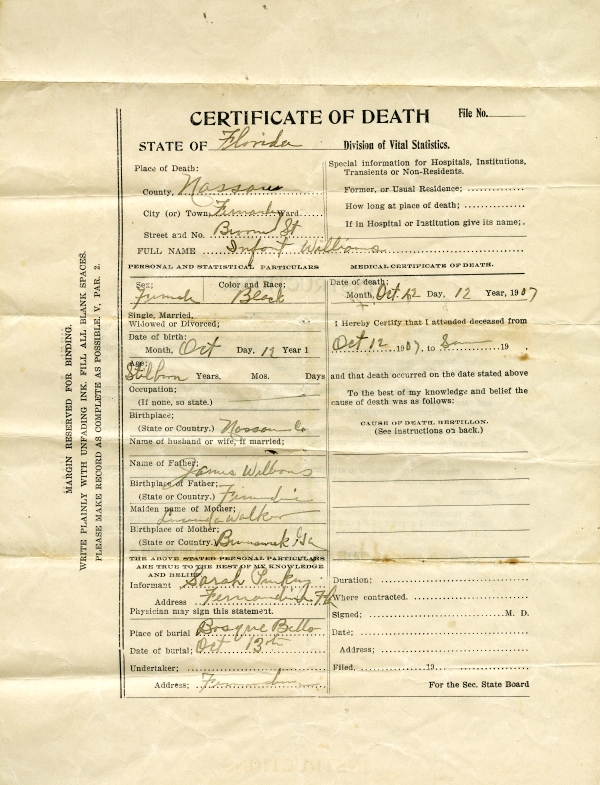 CERTIFICATE OF DEATH
File No.
STATE OF Florida
Division of Vital Statistics.
Place of Death:
County, Nassau
City (or) Town, Fernandi Ward
Street and No. Broom St
FULL NAME Infant Williams
Special information for Hospitals, Institutions, Transients or Non-Residents.
Former, or Usual Residence;
How long at place of death;
If in Hospital or Institution give its name;
PERSONAL AND STATISTICAL PARTICULARS
MEDICAL CERTIFICATE OF DEATH.
Sex; Female
Color and Race; Black
Single, Married,
Widowed or Divorced;
Date of birth:
Month, Oct Day, 12 Year 1
Age; Stilborn Years. Mos. Days
Occupation;
(If none, so state.)
Birthplace;
(State or Country.) Nassau Co
Name of husband or wife, if married;
Name of Father; James
Birthplace of Father;
(State or Country.)
Maiden name of Mother; Walker
Birthplace of Mother;
(State or Country.) Brunswick Ga
THE ABOVE STATED PERSONAL PARTICULARS
ARE TRUE TO THE BEST OF MY KNOWLEDGE
AND BELIEF
Informant Sarah
Address Fernandina Fla
Physician may sign this statement.
Place of burial Bosque Bello
Date of burial; Oct 13th
Undertaker;
Address;
Date of death;
Month, Oct Day, 12 Year, 1907
I Hereby Certify that I attended deceased from
Oct 12 1907, to 19
and that death occurred on the date stated above
To the best of my knowledge and belief the
cause of death was as follows:
CAUSE OF DEATH, BERTILLON.
(See instructions on back.)
Duration;
Where contracted.
Signed; M. D.
Date;
Address;
Filed, 19
For the Sec. State Board
MARGIN RESERVED FOR BINDING.
WRITE PLAINLY WITH UNFADING INK. FILL ALL BLANK SPACES.
PLEASE MAKE RECORD AS COMPLETE AS POSSIBLE. V. PAR. 2.